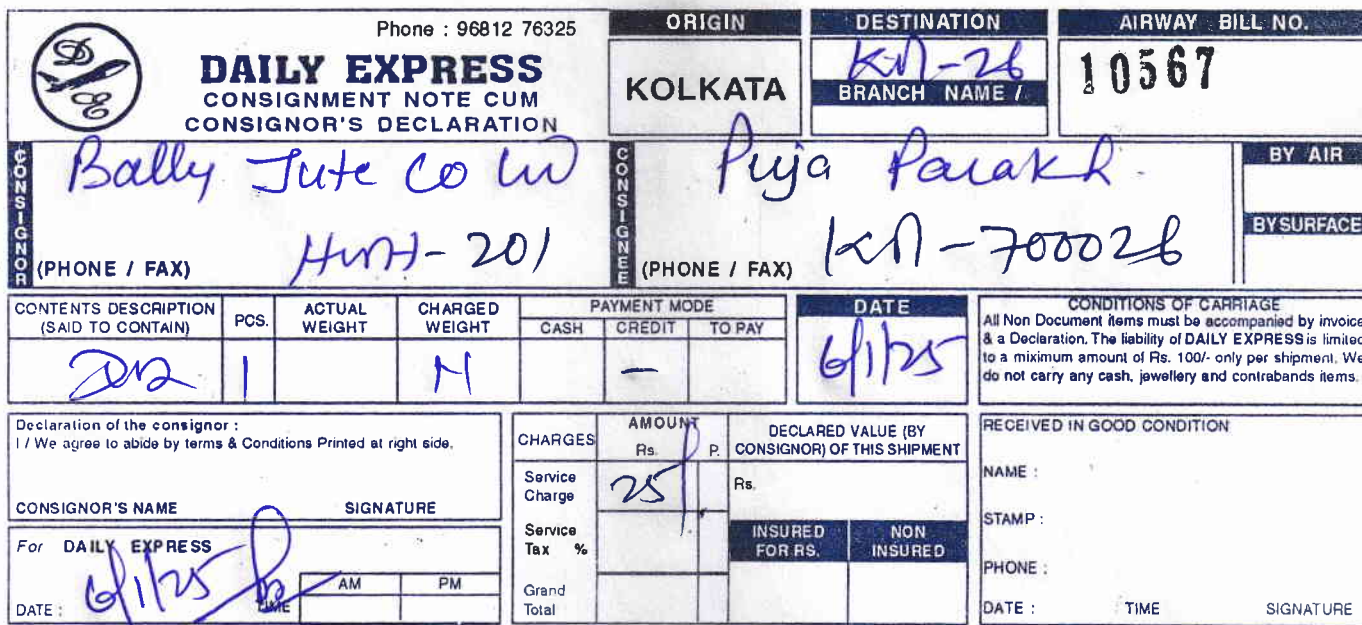 Phone : 96812 76325
DE
DAILY EXPRESS
CONSIGNMENT NOTE CUM
CONSIGNOR'S DECLARATION
ORIGIN
KOLKATA
DESTINATION
-26
BRANCH NAME /
AIRWAY BILL NO.
10567
CONSIGNOR
Bally Jute Co
- 201
(PHONE / FAX)
CONSIGNEE
Puja Parakh
- 700026
(PHONE / FAX)
BY AIR
BY SURFACE
CONTENTS DESCRIPTION
(SAID TO CONTAIN)
PCS.
1
ACTUAL
WEIGHT
CHARGED
WEIGHT
N
PAYMENT MODE
CASH CREDIT TO PAY
—
DATE
6/1/25
CONDITIONS OF CARRIAGE
All Non Document items must be accompanied by invoice
& a Declaration. The liability of DAILY EXPRESS is limited
to a miximum amount of Rs. 100/- only per shipment. We
do not carry any cash, jewellery and contrabands items.
Declaration of the consignor :
I / We agree to abide by terms & Conditions Printed at right side.
CONSIGNOR'S NAME SIGNATURE
For DAILY EXPRESS
6/1/25
DATE : TIME AM PM
CHARGES AMOUNT
Rs. P.
Service
Charge 25/
Service
Tax %
Grand
Total
DECLARED VALUE (BY
CONSIGNOR) OF THIS SHIPMENT
Rs.
INSURED
FOR RS.
NON
INSURED
RECEIVED IN GOOD CONDITION
NAME :
STAMP :
PHONE :
DATE : TIME SIGNATURE